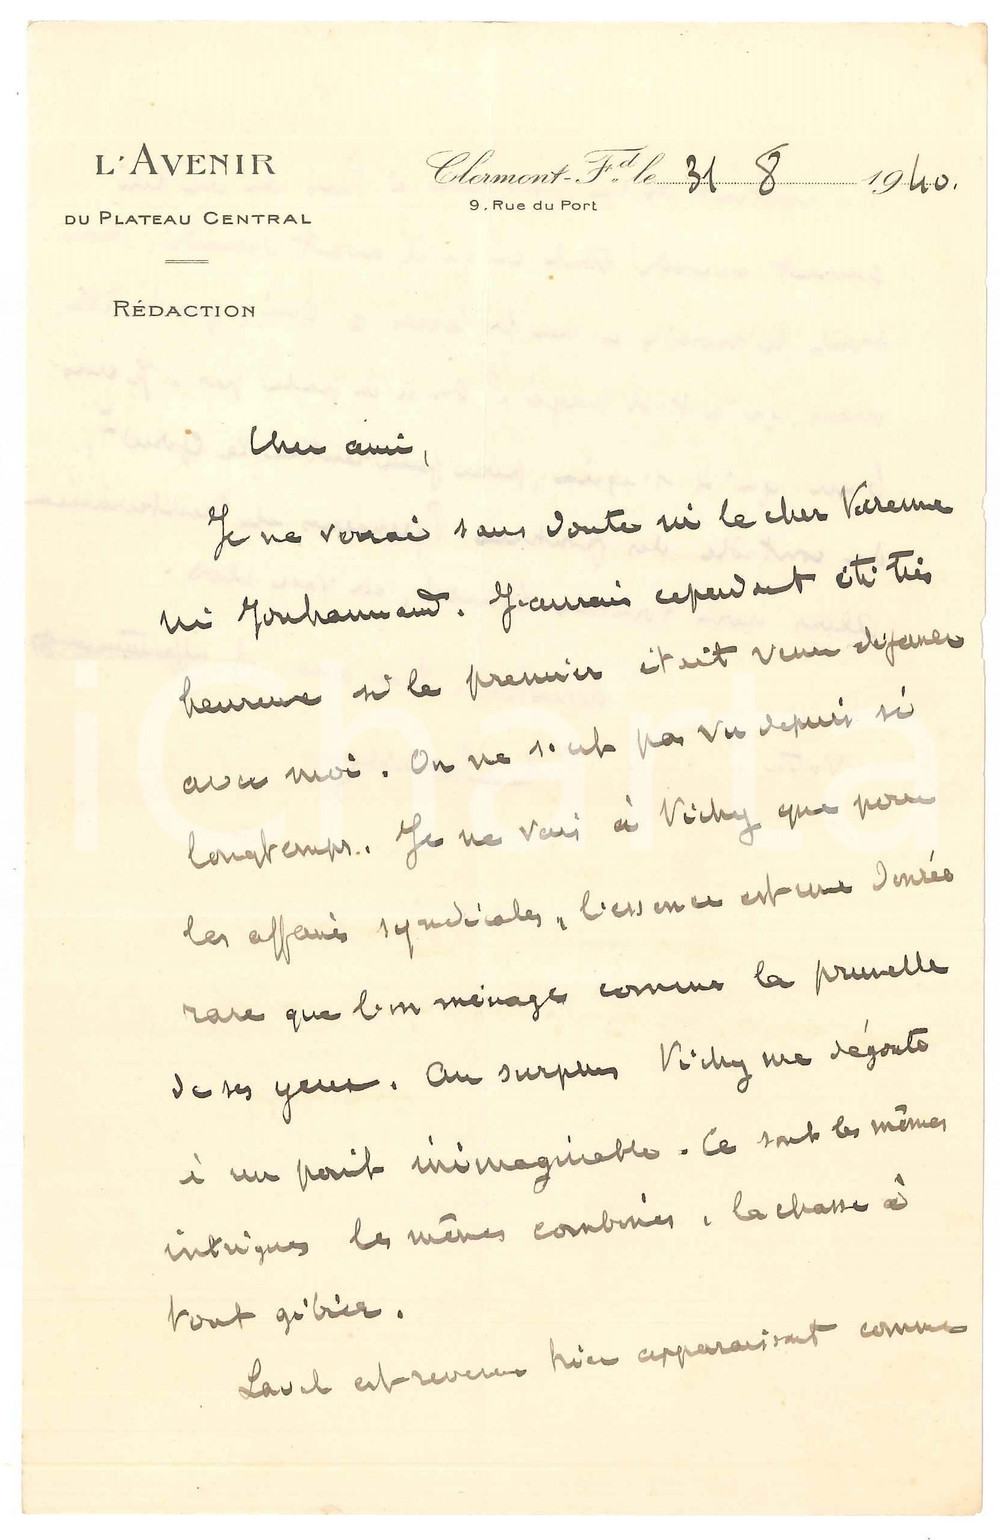 L'AVENIR
DU PLATEAU CENTRAL
RÉDACTION
Clermont-Fd. le 31 8 1940.
9. Rue du Port
Cher ami,
Je ne verrai sans doute ni le cher Varenne
ni Jouhannaud. J'aurais cependant été très
heureux si le premier était venu déjeuner
avec moi. On ne s'est pas vu depuis si
longtemps. Je ne vais à Vichy que pour
les affaires syndicales, l'essence est une denrée
rare que l'on ménage comme la prunelle
de ses yeux. Au surplus Vichy me dégoute
à un point inimaginable. Ce sont les mêmes
intrigues les mêmes combines, la chasse à
tout gibier.
Laval est revenu hier apparaissant comme
iCharta